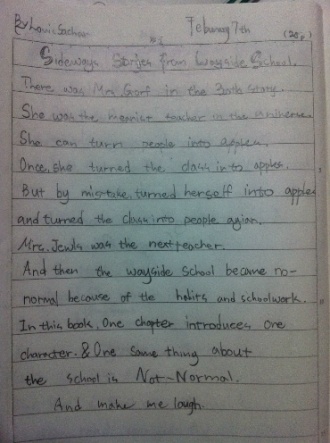 By Louis Sachar February 7th
Sideways Stories from Wayside School.
There was Mrs Gorf in the 30th story.
She was the meanist teacher in the universe.
She can turn people into apples.
Once, she turned the class into apples.
But by mistake, turned herself into apple
and turned the class into people agian.
Mrs. Jewls was the next teacher.
And then the wayside School became no-
normal because of the habits and schoolwork.
In this book, One chapter introduces one
character. & One same thing about
the school is Not-Normal.
And make me laugh.